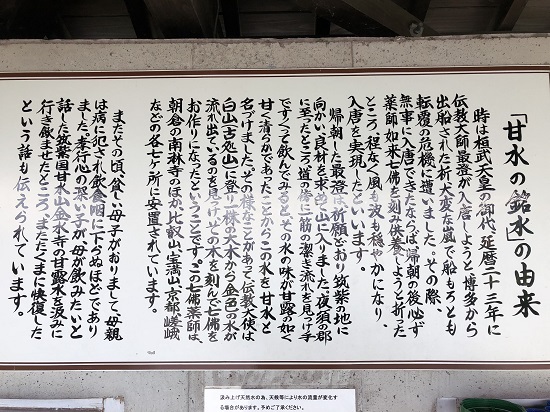 「甘水の銘水」の由来
時は桓武天皇の御代、延暦二十三年に
伝教大師最澄が入唐しようと、博多から
出船された折、大変な嵐で船もろとも
転覆の危機に遭いました。その際、
無事に入唐できたならば、帰朝の後必ず
薬師如来七佛を刻み供養しようと祈った
ところ、程なく風も波も穏やかになり、
入唐を実現したといいます。
帰朝した最澄は祈願どおり筑紫の地に
向かい、良材を求め山に入りました。夜須の郡
に至ったところ道の傍に一筋の潔き流れを見つけ手
ですくって飲んでみると、その水の味が甘露の如く
甘く清らかであったことからこの水を甘水と
名づけました。その様なことがあって伝教大使は
白山(古処山)に登り一株の大木から金色の水が
流れ出ているのを見つけ、その木を刻んで七佛を
お作りになったということです。この七佛薬師は、
朝倉の南淋寺のほか、比叡山、宝満山、京都嵯峨
などの各七ヶ所に安置されています。
またその頃、貧しい母子がおりまして、母親
は病に犯され飲食咽に下らぬほどであり
ました。孝行心の深い子が母が飲みたいと
話した筑紫国甘水山金水寺の甘露水を汲みに
行き飲ませたところ、またたくまに快復した
という話も伝えられています。
汲み上げ天然水の為、天候等により水の流量が変化す
る場合があります。予めご了承ください。